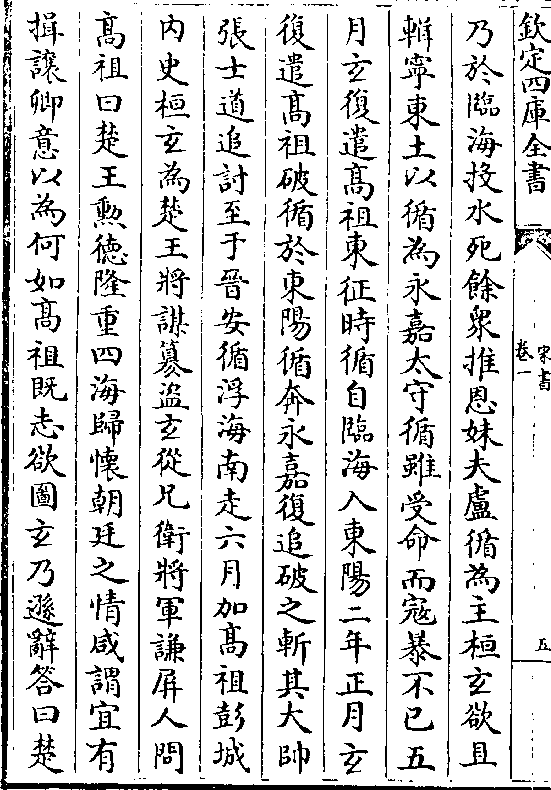 欽定四庫全書
宋書
卷一
五
乃於臨海投水死餘衆推恩妹夫盧循為主桓玄欲且
輯寧東土以循為永嘉太守循雖受命而寇暴不已五
月玄復遣髙祖東征時循自臨海入東陽二年正月玄
復遣髙祖破循於東陽循奔永嘉復追破之斬其大帥
張士道追討至于晉安循浮海南走六月加髙祖彭城
内史桓玄為楚王將謀簒盜玄從兄衛將軍謙屏人問
髙祖曰楚王勲德隆重四海歸懐朝廷之情咸謂宜有
揖讓卿意以為何如髙祖既志欲圖玄乃遜辭答曰楚